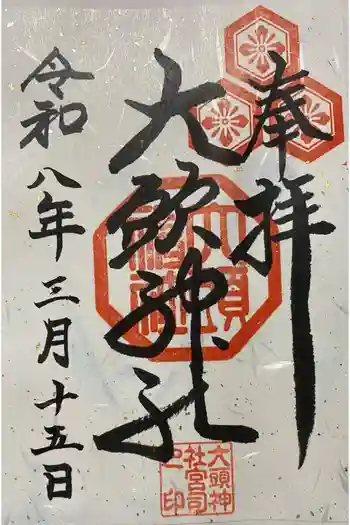 奉拝
大頭神社
大頭神社
令和八年三月十五日
大頭神
社宮司
之印